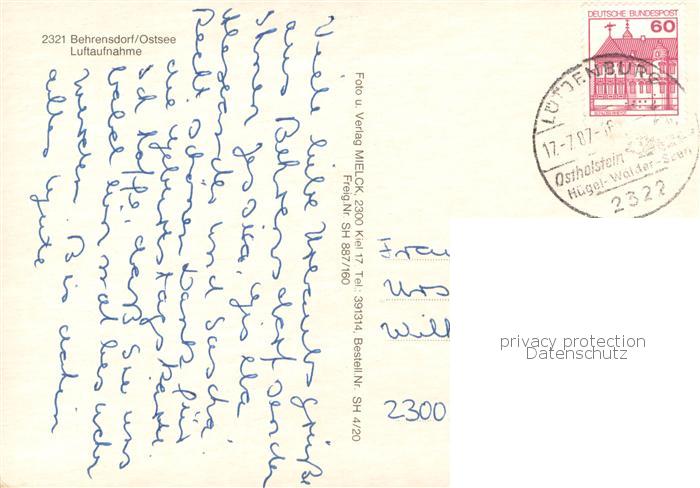 2321 Behrensdorf/Ostsee
Luftaufnahme
Viele liebe Urlaubsgrüße
aus Behrensdorf sendet
Ihnen Gisela
Alexander und Sascha.
Recht schönen Dank für
die Geburtstagskarte.
Ich hoffe, daß Sie uns
bald einmal besuchen
werden. Bis dahin
alles Gute
Foto u. Verlag MIELCK, 2300 Kiel 17 Tel.: 391314, Bestell.Nr. SH 4/20
Freig.Nr. SH 887/160
DEUTSCHE BUNDESPOST
60
LÜTJENBURG
17.-7.87-18
Ostholstein
Hügel-Wälder-Seen
2322
Frau
Urs
Will
2300
privacy protection
Datenschutz